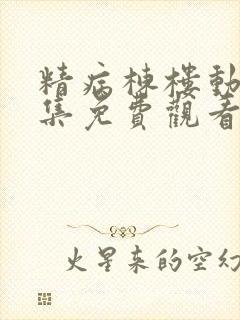 精病棟樓動
集免費觀看
火星來的空幻